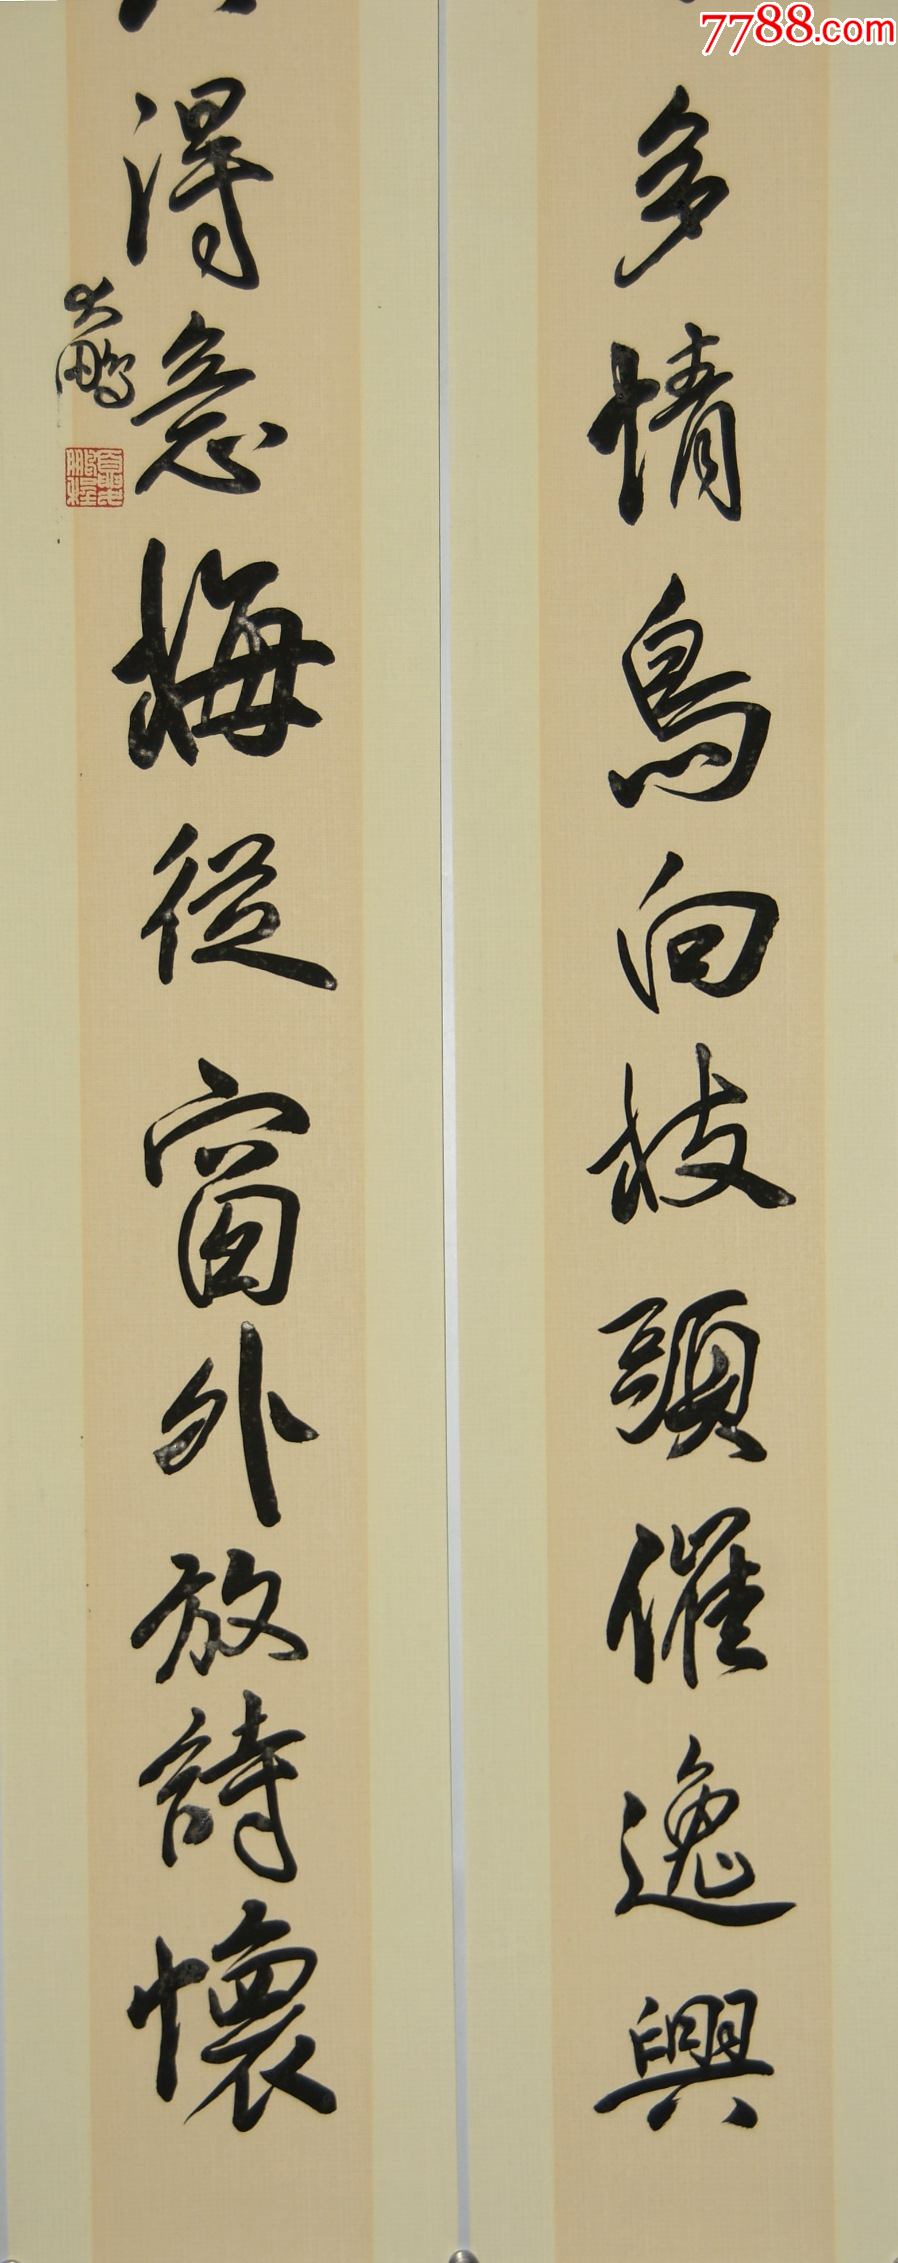 7788.com
多情鳥向枝頭催逸興
得意梅從窗外放詩懷
大鵬